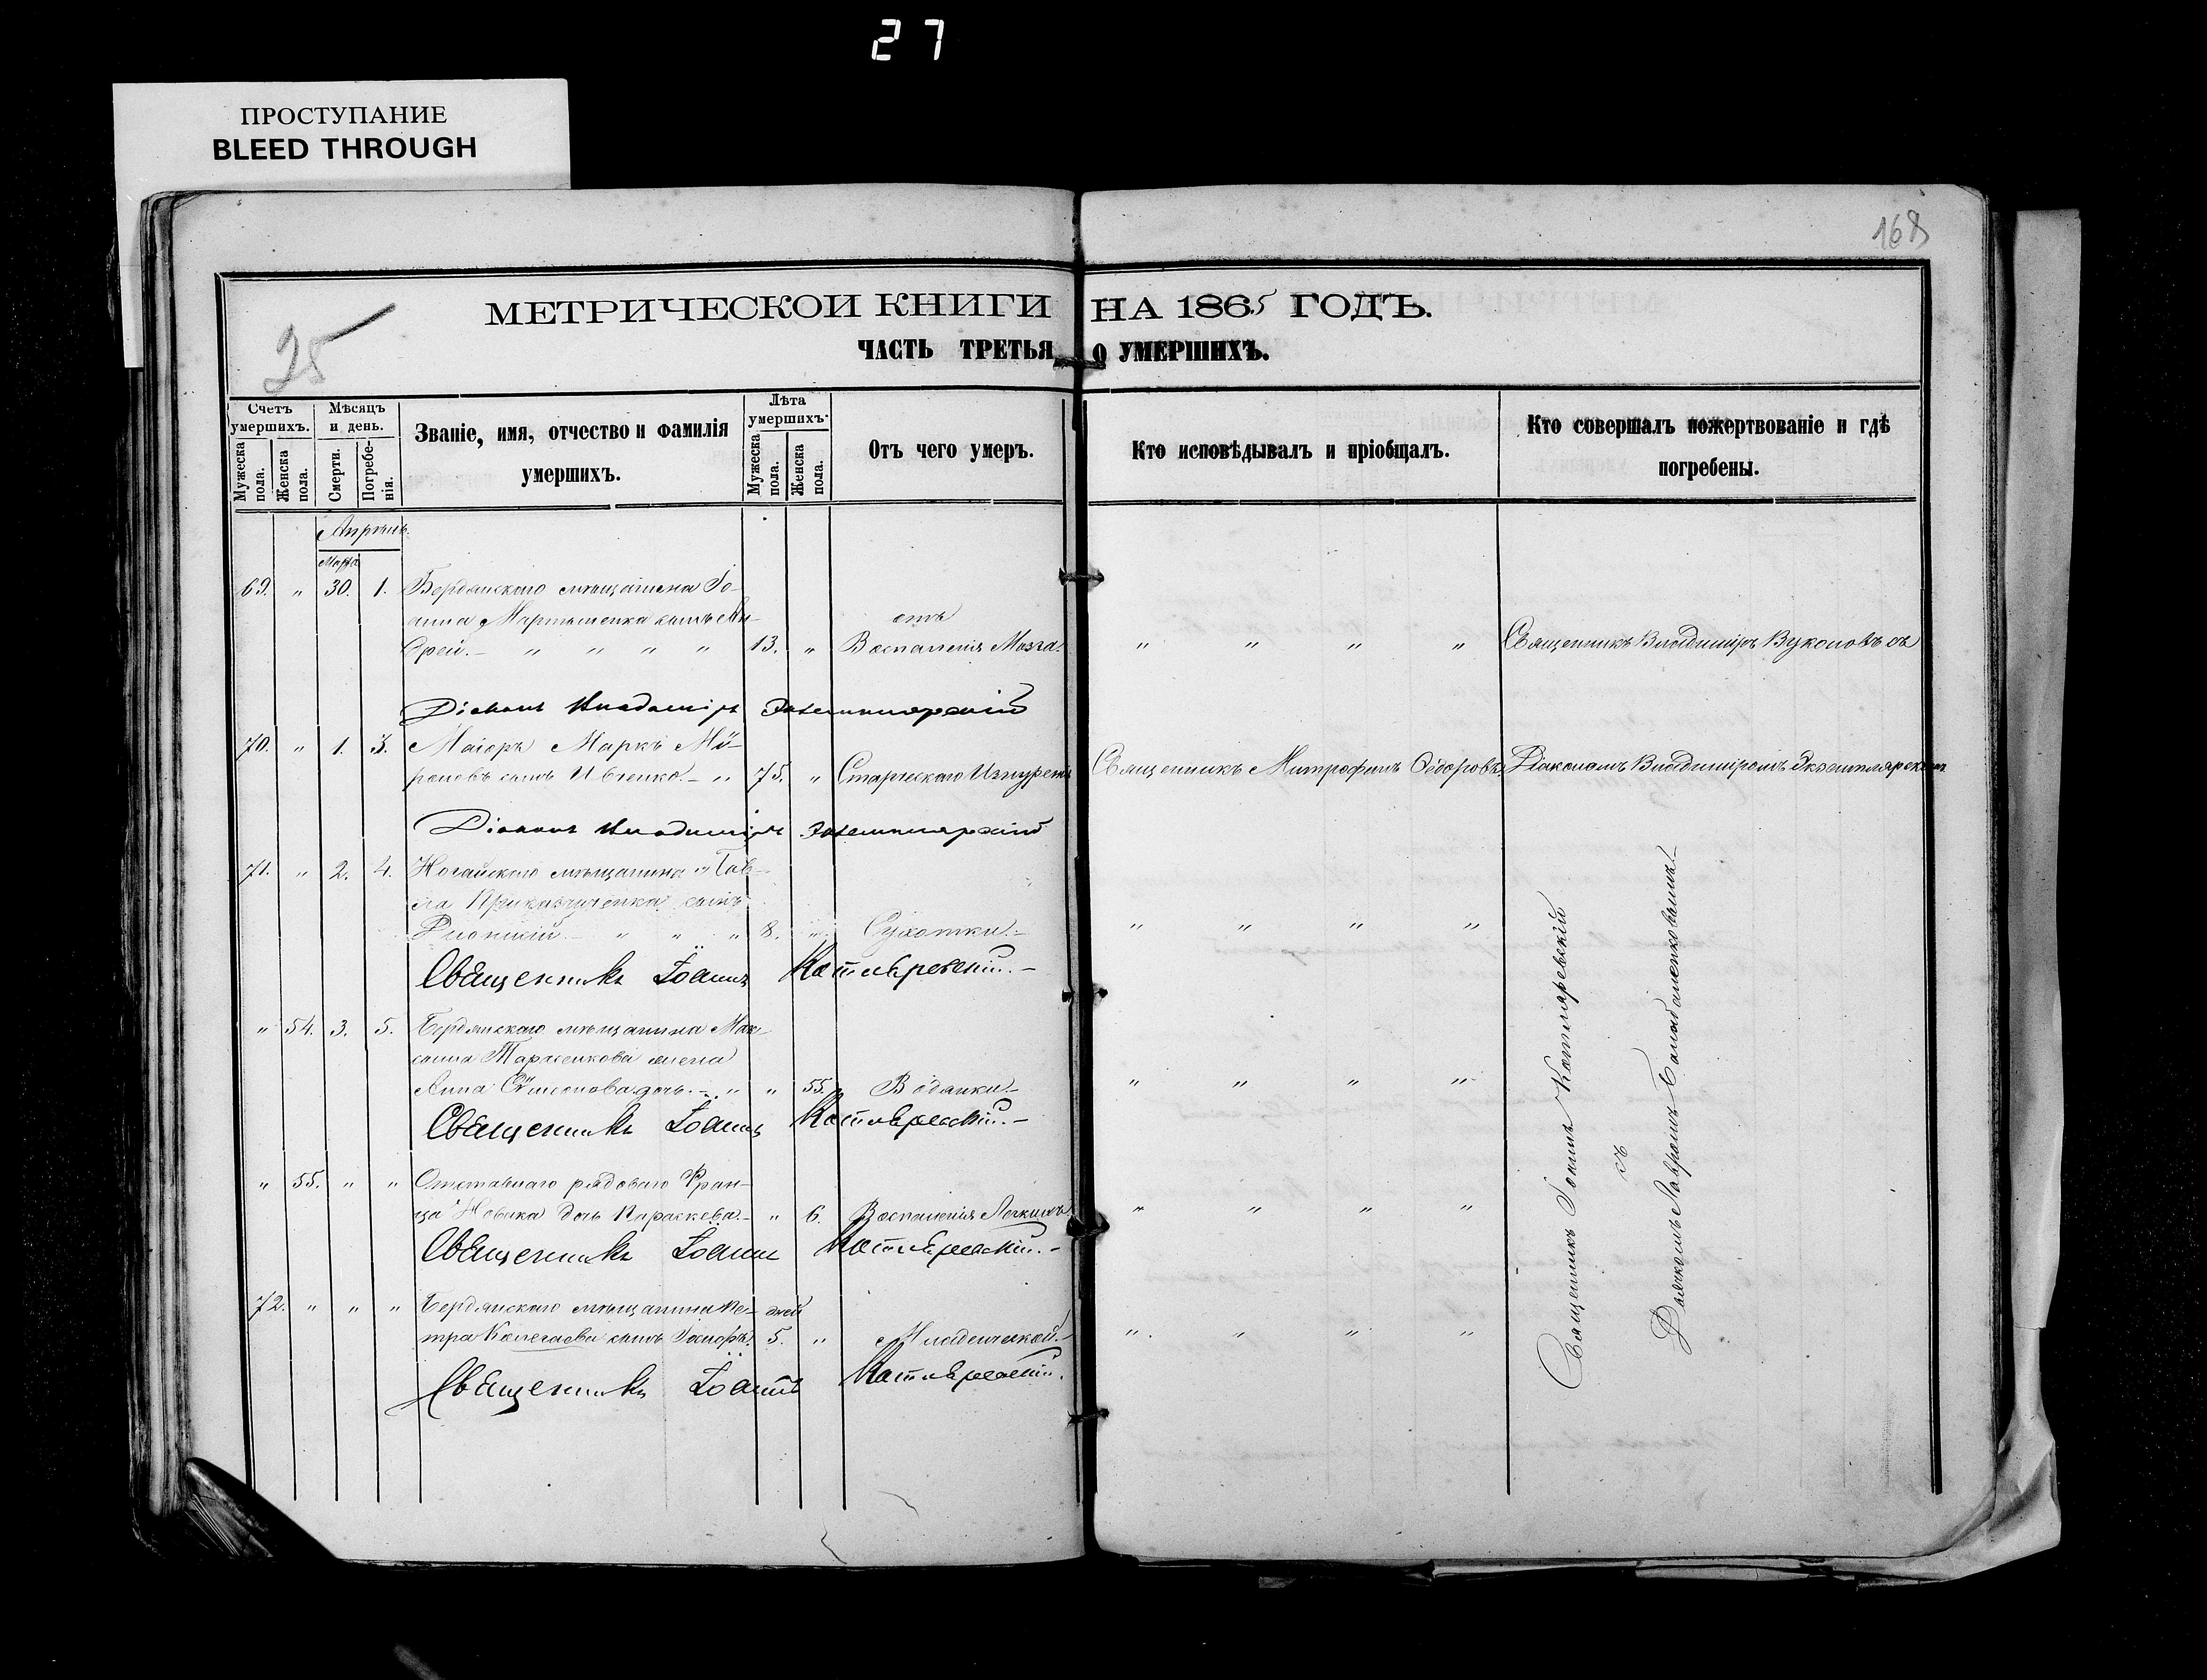 27
ПРОСТУПАНИЕ
BLEED THROUGH
168
25
МЕТРИЧЕСКОИ КНИГИ НА 1865 ГОДЪ.
ЧАСТЬ ТРЕТЬЯ О УМЕРШИХЪ.
Счетъ умершихъ.
Мужеска пола.
Женска пола.
Мѣсяцъ и день.
Смерти.
Погребенія.
Званіе, имя, отчество и фамилія
умершихъ.
Лѣта умершихъ.
Мужеска пола.
Женска пола.
Отъ чего умеръ.
Кто исповѣдывалъ и пріобщалъ.
Кто совершалъ пожертвованіе и гдѣ
погребены.
Апрѣль.
Марта
69. " 30. 1. Бердянскаго мѣщанина Іо-
анна Мартыненка сынъ Ан- отъ
дрей. - " " " " 13. " Воспаленія Мозга. " " " " Священникъ Владиміръ Вуколовъ съ
Діаконъ Владиміръ Экземплярскій
70. " 1. 3. Маіоръ Маркъ Мѵ-
роновъ сынъ Ивченко. - " 75. " Старческаго Священникъ Митрофанъ Діакономъ Владиміромъ Экземплярскимъ
Діаконъ Владиміръ Экземплярскій
71. " 2. 4. Ногайскаго мѣщанина Пав-
ла сынъ
Діонисій - " " " 8. " Сухотки. - " " " "
Священникъ Іоаннъ Котляревскій. -
" 54. 3. 5. Бердянскаго мѣщанина Мак-
сима жена
Анна Сѵмеонова дочь. - " " 55. Водянки. - " " " "
Священникъ Іоаннъ Котляревскій. -
" 55. " " Отставнаго рядоваго Фран-
ца Новака дочь Параскева. - " 6. Воспаленія Легкихъ " " " "
Священникъ Іоаннъ Котляревскій. -
72. " " " Бердянскаго мѣщанина Пе- дней
тра сынъ 5. " Младенческой. - " " " "
Священникъ Іоаннъ Котляревскій.
Священникъ Іоаннъ Котляревскій
съ
Лавромъ